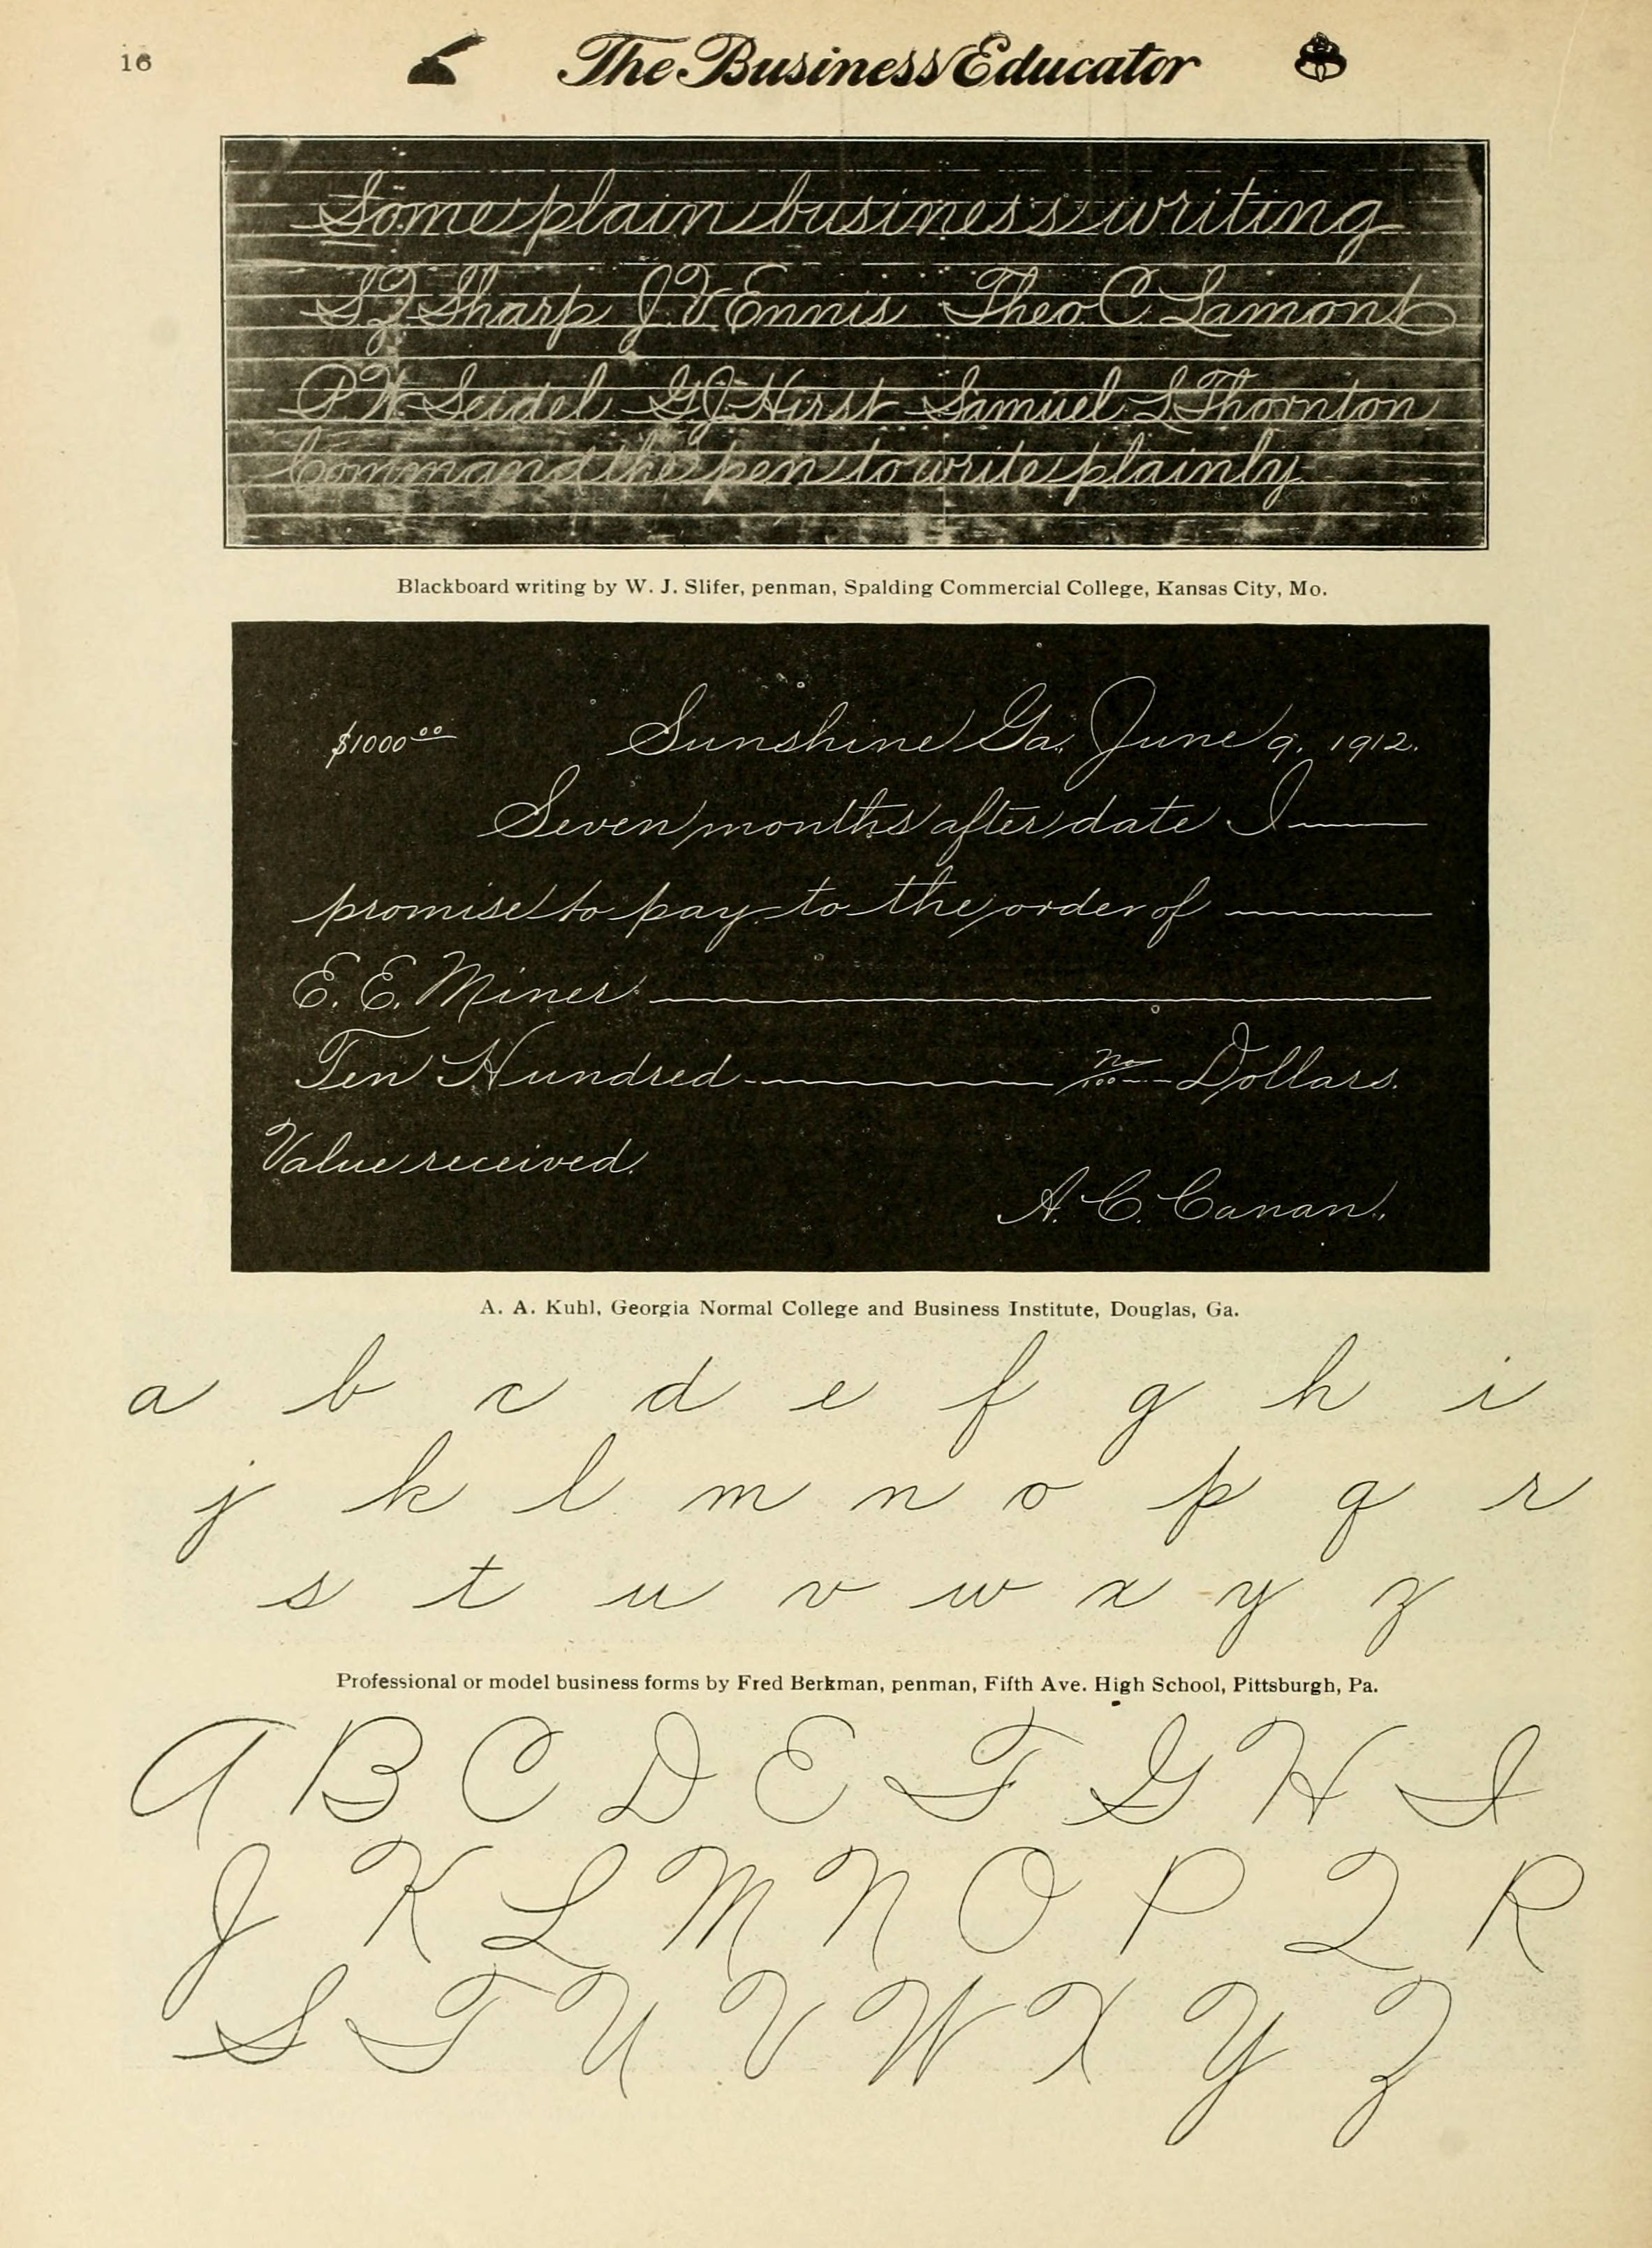 16
The Business Educator
Some plain business writing
S Z Sharp J. V. Ennis Theo. C. Lamont
P W Seidel G J Hirst Samuel L Thornton
Command the pen to write plainly
$1000 00 Sunshine Ga. June 9, 1912.
Seven months after date I
promise to pay to the order of
E. E. Miner
Ten Hundred no/100 Dollars.
Value received.
A. C. Canan.
Blackboard writing by W. J. Slifer, penman, Spalding Commercial College, Kansas City, Mo.
A. A. Kuhl, Georgia Normal College and Business Institute, Douglas, Ga.
a b c d e f g h i
j k l m n o p q r
s t u v w x y z
Professional or model business forms by Fred Berkman, penman, Fifth Ave. High School, Pittsburgh, Pa.
A B C D E F G H I
J K L M N O P Q R
S T U V W X Y Z